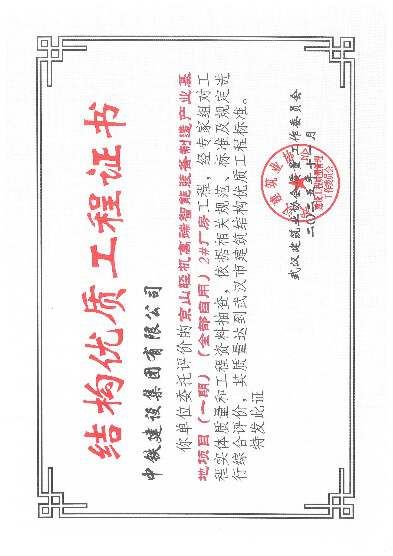 结构优质工程证书
中铁建设集团有限公司
你单位委托评价的京山轻机高端智能装备制造产业基
地项目（一期）（全部自用）2#厂房工程，经专家组对工
程实体质量和工程资料抽查，依据相关规范、标准及规定进
行综合评价，其质量达到武汉市建筑结构优质工程标准。
特发此证
武汉建筑业协会质量工作委员会